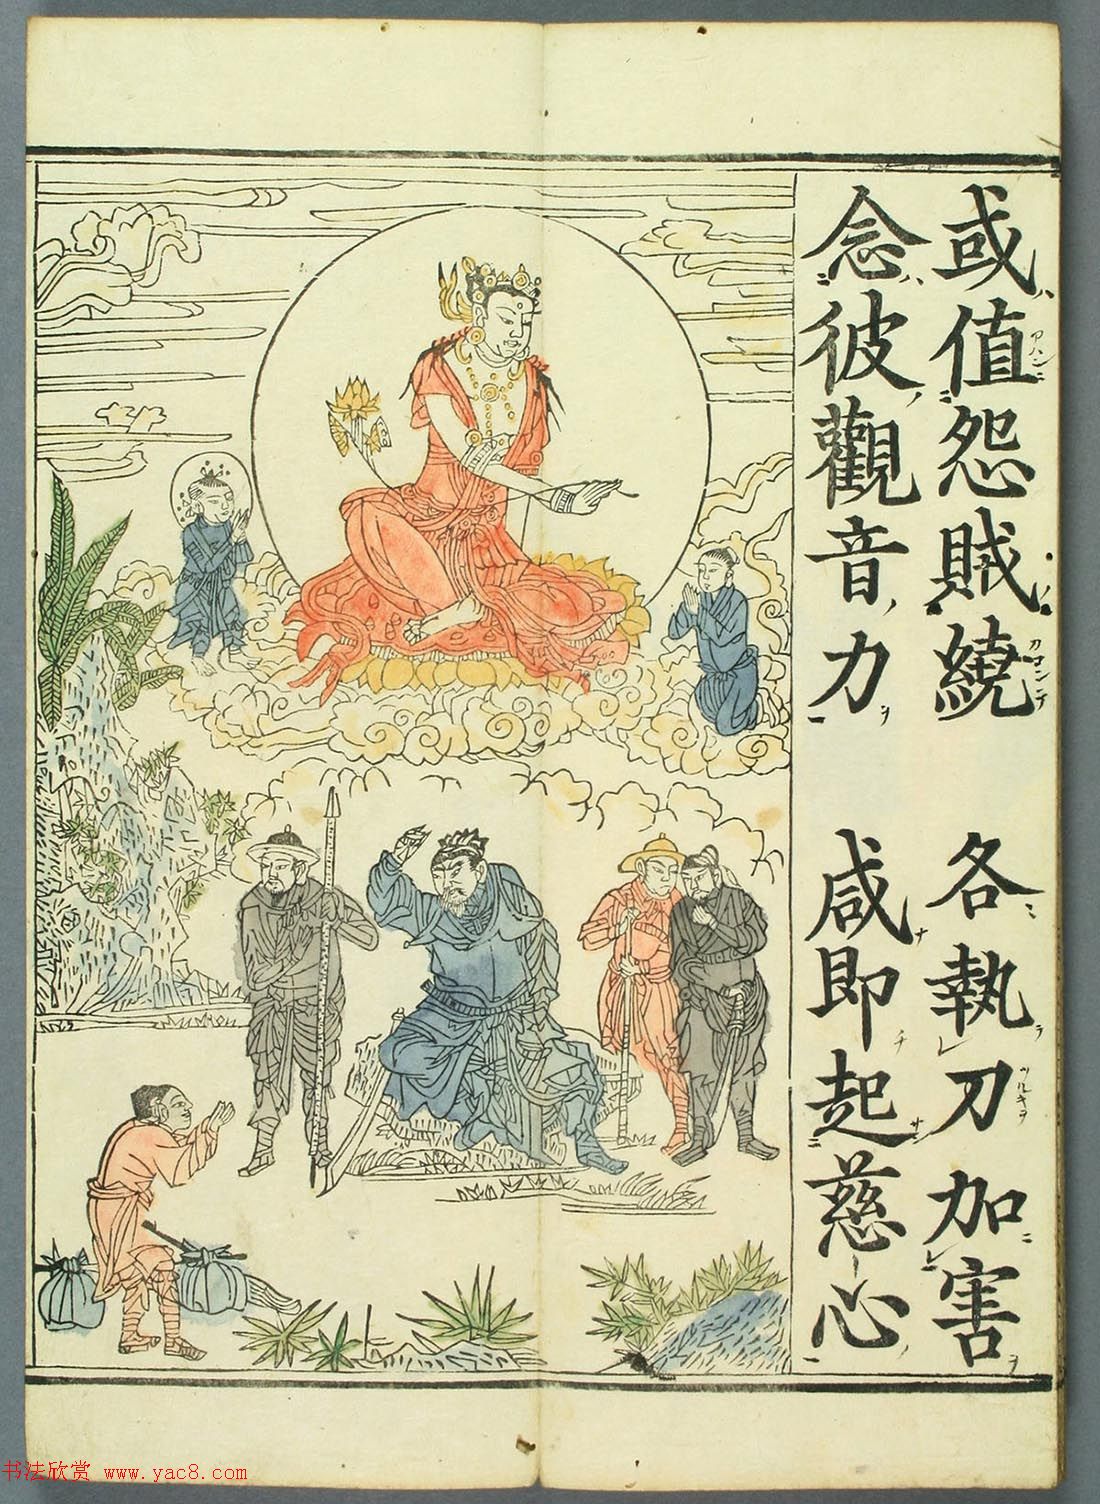 或値怨賊繞　各執刀加害
念彼觀音力　咸即起慈心
书法欣赏 www.yac8.com